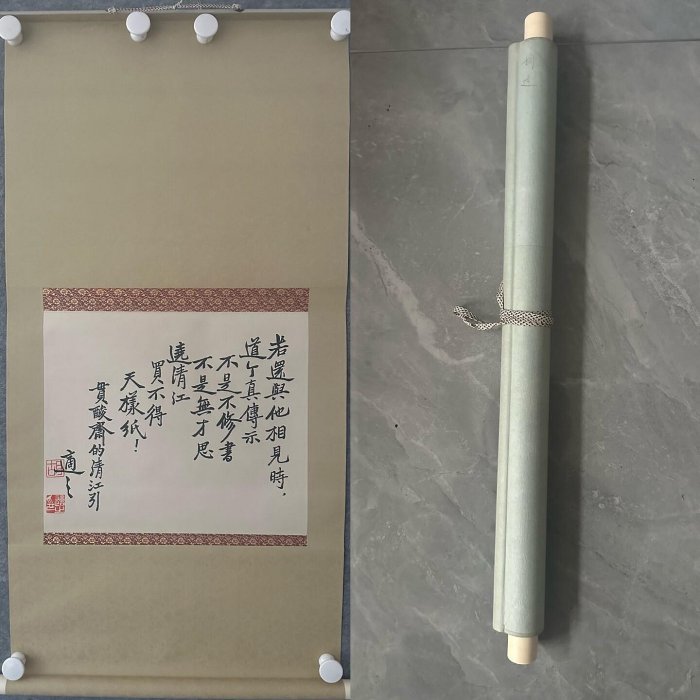 若還與他相見時，
道个真傳示
不是不修書
不是無才思
遶清江
買不得
天樣紙！
貫酸齋的清江引
適之